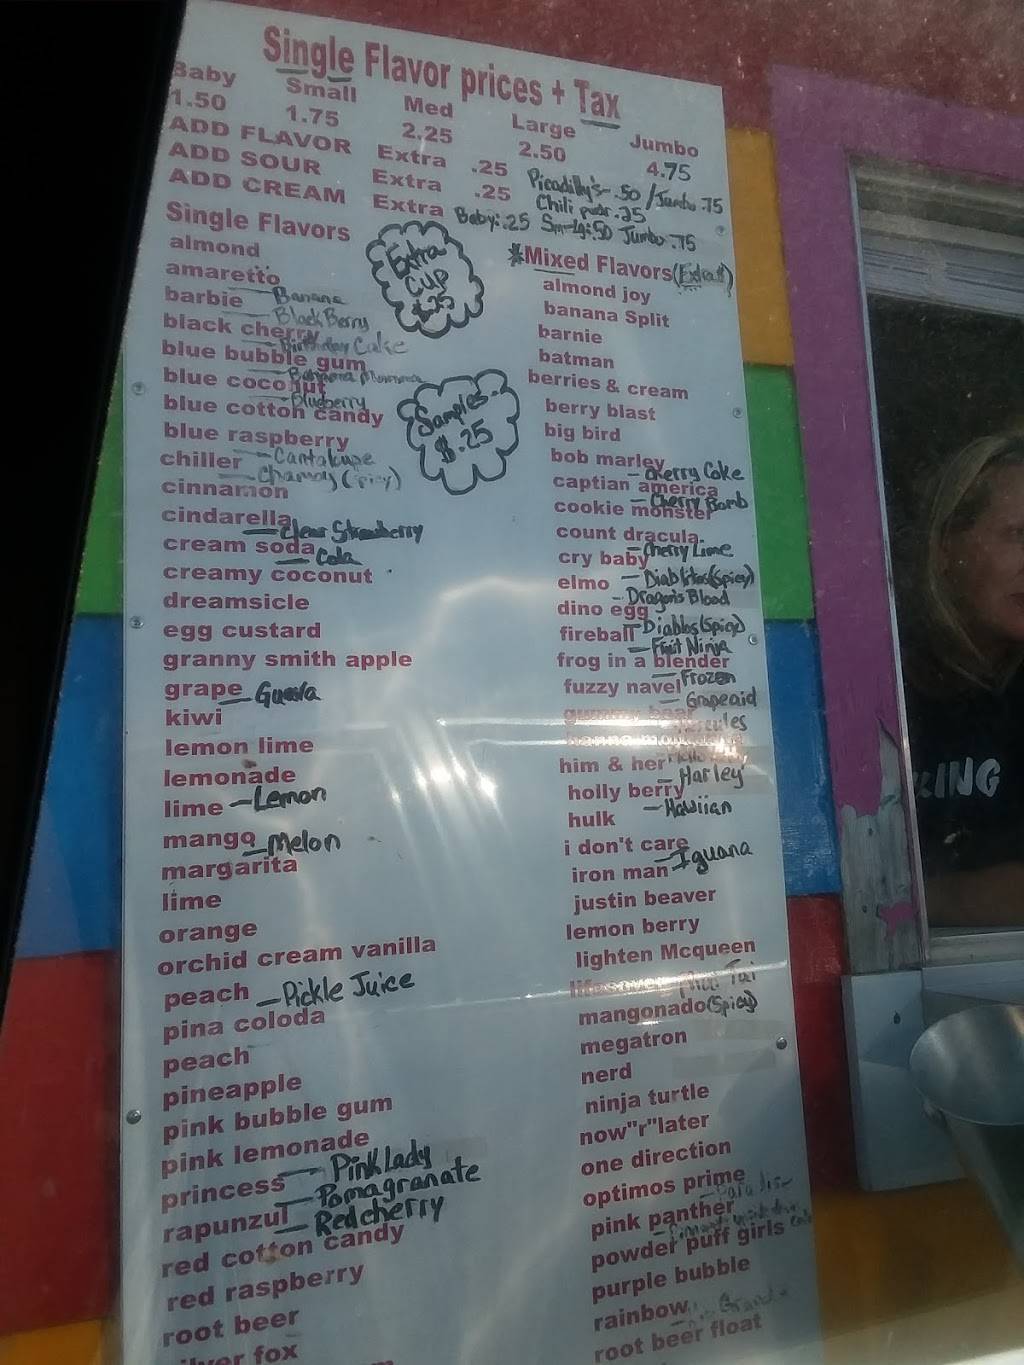 Single Flavor prices + Tax
Baby Small Med Large Jumbo
1.50 1.75 2.25 2.50 4.75
ADD FLAVOR Extra .25
ADD SOUR Extra .25
Picadilly's- .50 / Jumbo .75
Chili pwdr .25
ADD CREAM Extra Baby: .25 Sm-Lg: .50 Jumbo .75
Single Flavors
almond
amaretto
barbie — Banana
— BlackBerry
black cherry
— Birthday Cake
blue bubble gum
— Bahama Mamma
blue coconut
— Blueberry
blue cotton candy
blue raspberry
— Cantaloupe
chiller
— Chamoy (Spicy)
cinnamon
cindarella
— Clear Strawberry
cream soda
— Cola
creamy coconut
dreamsicle
egg custard
granny smith apple
grape — Guava
kiwi
lemon lime
lemonade
lime — Lemon
mango — Melon
margarita
lime
orange
orchid cream vanilla
peach — Pickle Juice
pina coloda
peach
pineapple
pink bubble gum
pink lemonade
— Pink Lady
princess
— Pomagranate
rapunzul
— Redcherry
red cotton candy
red raspberry
root beer
fox
Extra
Cup
$.25
Samples-
$.25
*Mixed Flavors (Extra $)
almond joy
banana Split
barnie
batman
berries & cream
berry blast
big bird
bob marley
— Cherry Coke
captian america
— Cherry Bomb
cookie monster
count dracula.
— Cherry Lime
cry baby
— Diablitos (Spicy)
elmo
- Dragon's Blood
dino egg
— Diablos (Spicy)
fireball
— Fruit Ninja
frog in a blender
— Frozen
fuzzy navel
— Grapeaid
gummy bear
Hercules
hanna montana
him & her
— Harley
holly berry
— Hawiian
hulk
i don't care
— Iguana
iron man
justin beaver
lemon berry
lighten Mcqueen
lifesaver Mai Tai
mangonado (Spicy)
megatron
nerd
ninja turtle
now"r"later
one direction
optimos prime
— Paradise
pink panther
powder puff girls
purple bubble
rainbow
root beer float
KING